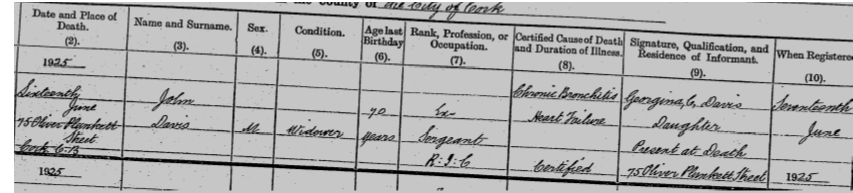 the County of the City of Cork
Date and Place of Death. (2).
Name and Surname. (3).
Sex. (4).
Condition. (5).
Age last Birthday (6).
Rank, Profession, or Occupation. (7).
Certified Cause of Death and Duration of Illness. (8).
Signature, Qualification, and Residence of Informant. (9).
When Registered (10).
1925
Sixteenth June 75 Oliver Plunkett Street Cork C.B
1925
John Davis
M
Widower
70 years
Ex- Sergeant R.I.C
Chronic Bronchitis Heart Failure Certified
Georgina Davis Daughter Present at Death 75 Oliver Plunkett Street
Seventeenth June 1925